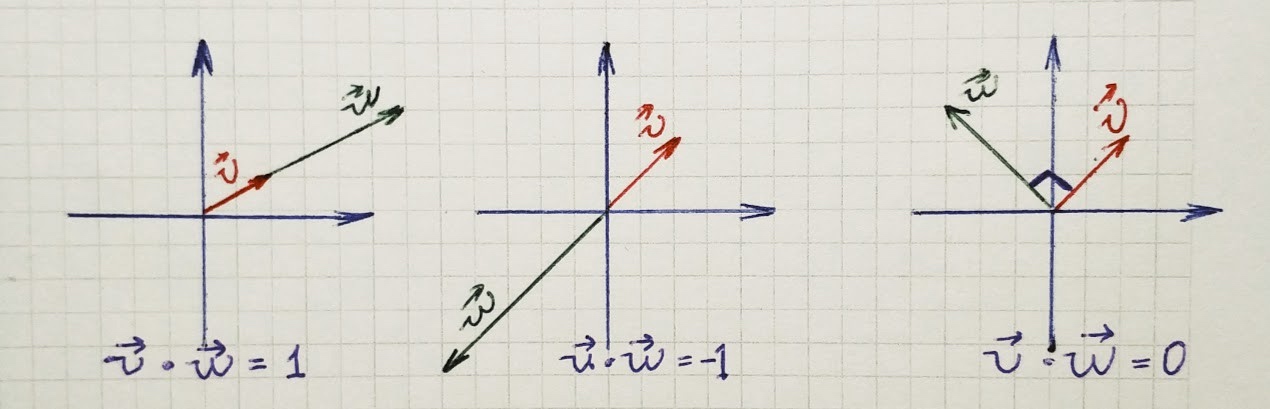 v⃗ w⃗
v⃗ · w⃗ = 1
v⃗ w⃗
u⃗ · w⃗ = -1
w⃗ v⃗
v⃗ · w⃗ = 0